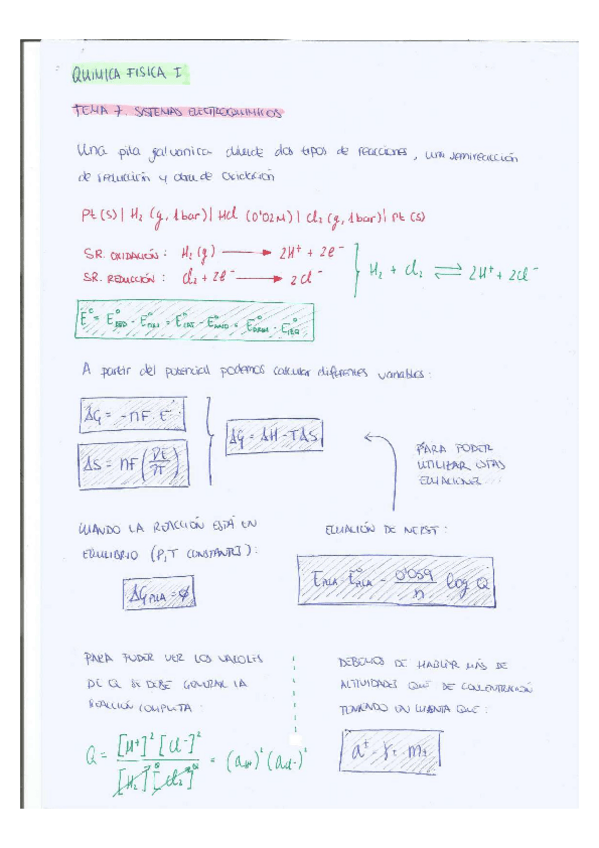 QUIMICA FISICA I
TEMA 7. SISTEMAS ELECTROQUIMICOS
Una pila galvanica divide dos tipos de reacciones, una semireacción
de reducción y otra de oxidación
Pt (s) | H₂ (g, 1 bar) | HCl (0'02 M) | Cl₂ (g, 1 bar) | Pt (s)
SR. OXIDACIÓN: H₂ (g) → 2H⁺ + 2e⁻
SR. REDUCCIÓN: Cl₂ + 2e⁻ → 2Cl⁻
H₂ + Cl₂ ⇌ 2H⁺ + 2Cl⁻
E° = E°RED - E° = E°CAT - E°ANO = E°DRCHA - E°IZQ
A partir del potencial podemos calcular diferentes variables:
ΔG = -nF·E
ΔS = nF (∂E/∂T)
ΔG = ΔH - TΔS
PARA PODER
UTILIZAR ESTAS
ECUACIONES...
CUANDO LA REACCIÓN ESTÁ EN
EQUILIBRIO (P,T CONSTANTES):
ΔG PILA = ϕ
ECUACIÓN DE NERST:
E PILA = E° PILA - 0'059/n log Q
PARA PODER VER LOS VALORES
DE Q SE DEBE GENERAR LA
REACCIÓN COMPLETA:
Q = [H⁺]² [Cl⁻]² / [H₂] [Cl₂] = (aH⁺)² (aCl⁻)²
DEBEMOS DE HABLAR MÁS DE
ACTIVIDADES QUE DE CONCENTRACIÓN
TENIENDO EN CUENTA QUE:
a± = γ± · m±